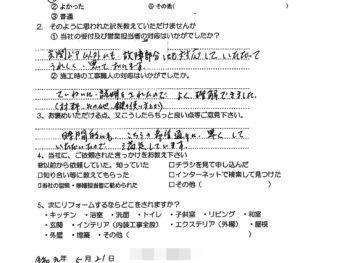 ② よかった　⑤ その他(　)
③ 普通
2. そのように思われた訳を教えていただけませんか
① 当社の受付及び営業担当者の対応はいかがでしたか？
玄関ドア以外にも 故障部分に対応していただいて
うれしく思っております。
② 施工時の工事職人の対応はいかがでしたか？
ていねいに説明をされたので よく理解できました。
3. お褒めいただける点、又こうしたらもっと良い点等ご意見下さい。
時間的にも、こちらの希望通りに 早くして
いただいたので 満足しています。
4. 当社に、ご依頼された言っかけをお教え下さい
□以前から依頼していた、知っていた　□チラシを見て申し込んだ
□知り合い等に教えてもらった　□インターネットで検索して見つけた
□当社の営業・修理担当者に勧められた　□その他(　)
5. 次にリフォームするならどこをされますか？
・キッチン　・浴室　・洗面　・トイレ　・子供室　・リビング　・和室
・玄関　・インテリア(内装工事全般)　・エクステリア(外構)　・屋根
・外壁　・増築　・その他(　)
5月21日